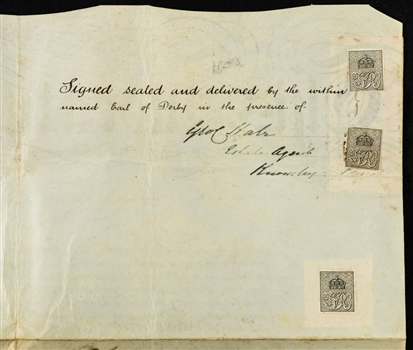 Signed sealed and delivered by the within
named Earl of Derby in the presence of
Geo Hale
Estate Agent
Knowsley
VR
VR
VR